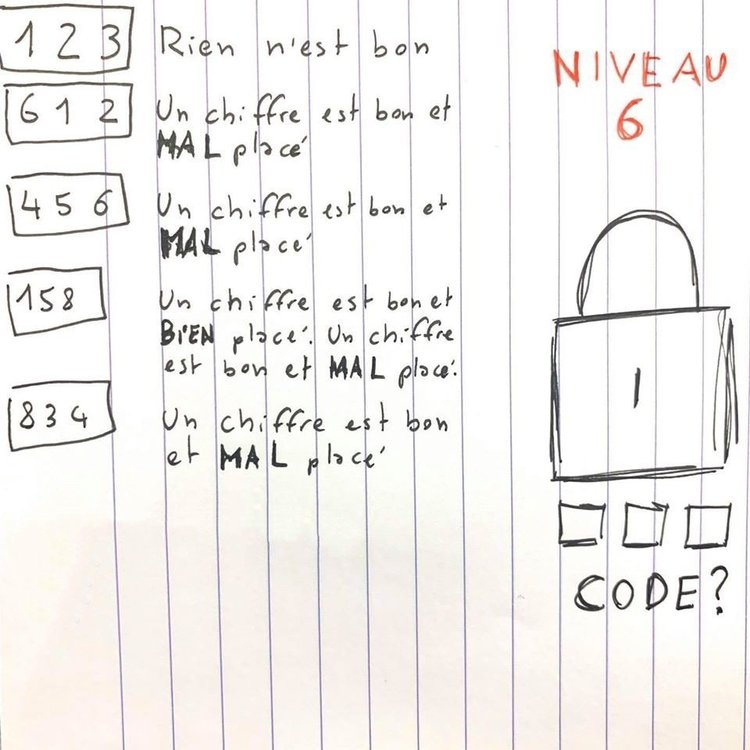 1 2 3 Rien n'est bon
NIVEAU
6
6 1 2 Un chiffre est bon et
MAL placé
4 5 6 Un chiffre est bon et
MAL placé
158 Un chiffre est bon et
BIEN placé. Un chiffre
est bon et MAL placé.
834 Un chiffre est bon
et MAL placé
CODE?